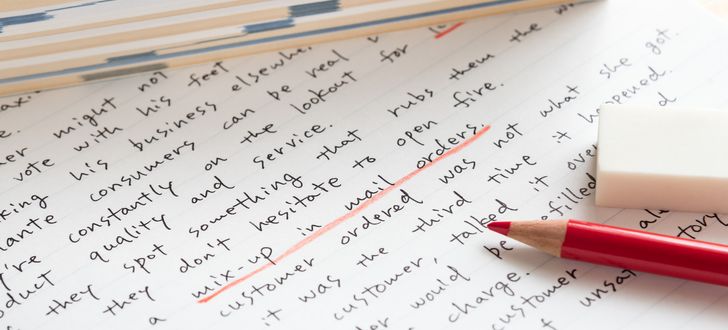 might not
vote with his feet
his business elsewhere
consumers can be real
constantly on the lookout for
quality and service.
they spot something that rubs them the
they don't hesitate to open fire.
a mix-up in mail orders.
customer ordered was not what she got.
it was the third time it happened.
customer, talked it over
would be
charge.
customer
of